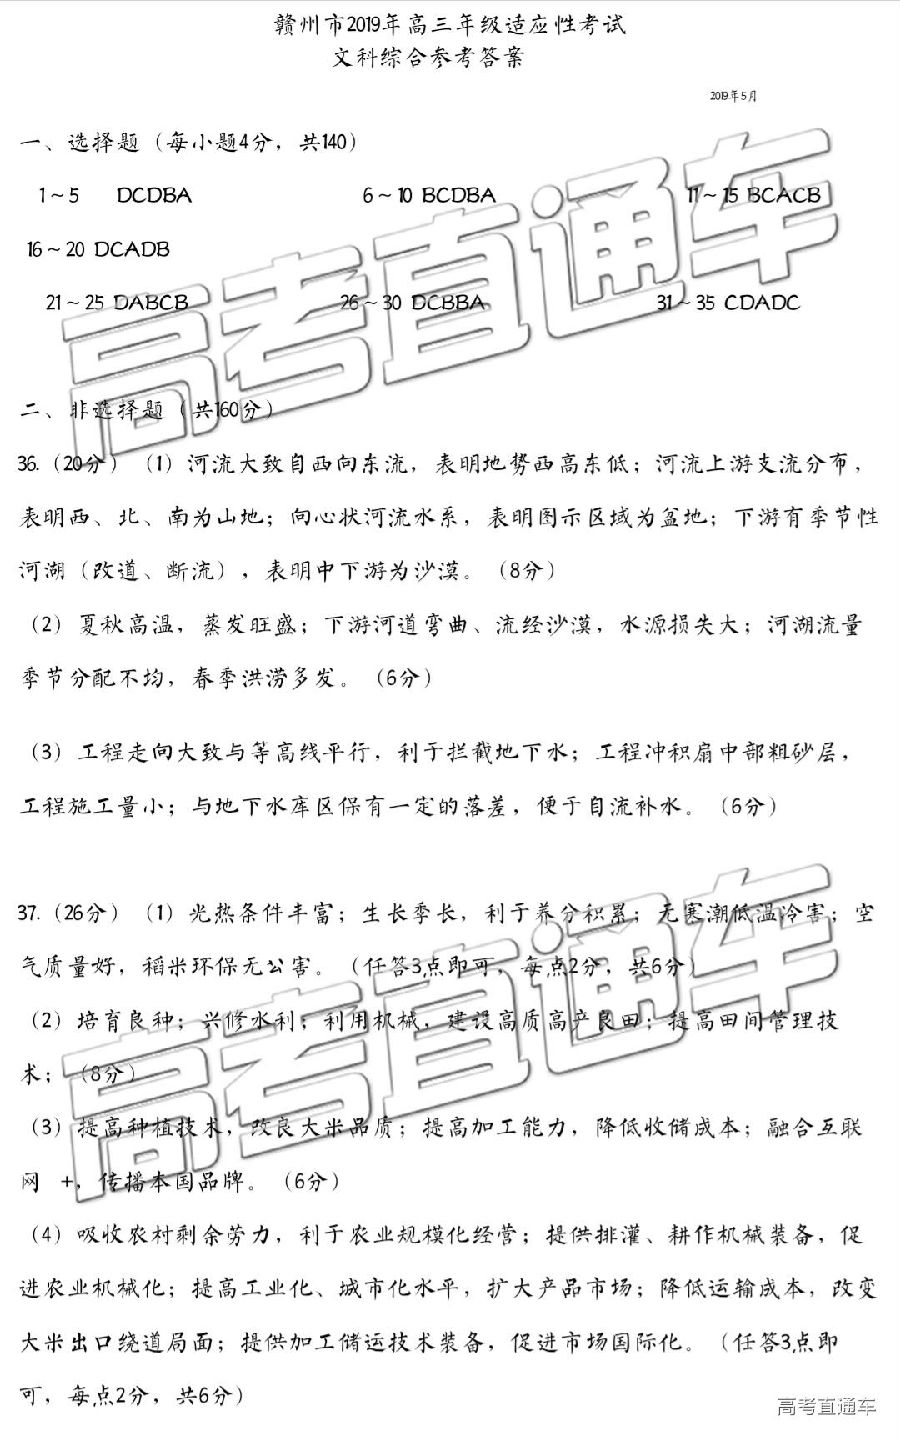 赣州市2019年高三年级适应性考试
文科综合参考答案
2019年5月
一、选择题（每小题4分，共140）
1～5 DCDBA 6～10 BCDBA 11～15 BCACB
16～20 DCADB
21～25 DABCB 26～30 DCBBA 31～35 CDADC
二、非选择题（共160分）
36.（20分）（1）河流大致自西向东流，表明地势西高东低；河流上游支流分布，
表明西、北、南为山地；向心状河流水系，表明图示区域为盆地；下游有季节性
河湖（改道、断流），表明中下游为沙漠。（8分）
（2）夏秋高温，蒸发旺盛；下游河道弯曲、流经沙漠，水源损失大；河湖流量
季节分配不均，春季洪涝多发。（6分）
（3）工程走向大致与等高线平行，利于拦截地下水；工程冲积扇中部粗砂层，
工程施工量小；与地下水库区保有一定的落差，便于自流补水。（6分）
37.（26分）（1）光热条件丰富；生长季长，利于养分积累；无寒潮低温冷害；空
气质量好，稻米环保无公害。（任答3点即可，每点2分，共6分）
（2）培育良种；兴修水利；利用机械，建设高质高产良田；提高田间管理技
术；（8分）
（3）提高种植技术，改良大米品质；提高加工能力，降低收储成本；融合互联
网 +，传播本国品牌。（6分）
（4）吸收农村剩余劳力，利于农业规模化经营；提供排灌、耕作机械装备，促
进农业机械化；提高工业化、城市化水平，扩大产品市场；降低运输成本，改变
大米出口绕道局面；提供加工储运技术装备，促进市场国际化。（任答3点即
可，每点2分，共6分）
高考直通车
高考直通车
高考直通车